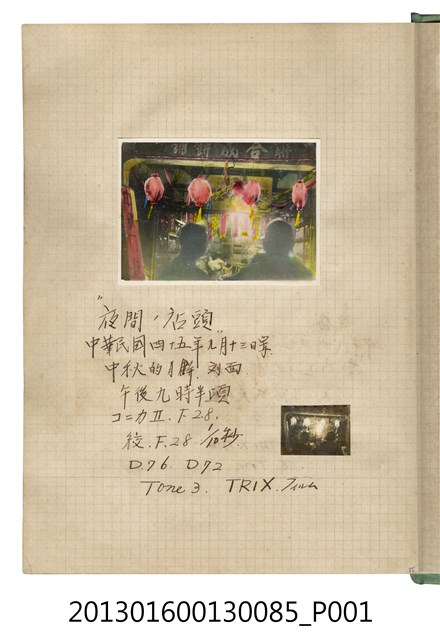 "夜間ノ店頭"
中華民國四十五年九月十三日
中秋的 対面
午後九時半頃
コニカⅡ. F.2.8.
絞. F.2.8 1/10秒
D.76 D72
Tone 3. TRIX. フィルム
201301600130085_P001